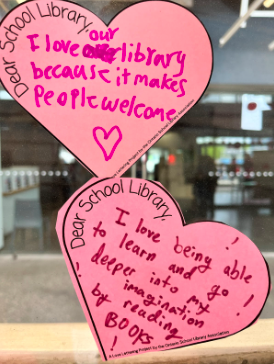 Dear School Library,
our
I love library
because it makes
People welcome
A Love Lettering Project by the Ontario School Library Association
Dear School Library,
I love being able
to learn and go
deeper into my
imagination
by reading
BOOKS
!
A Love Lettering Project by the Ontario School Library Association